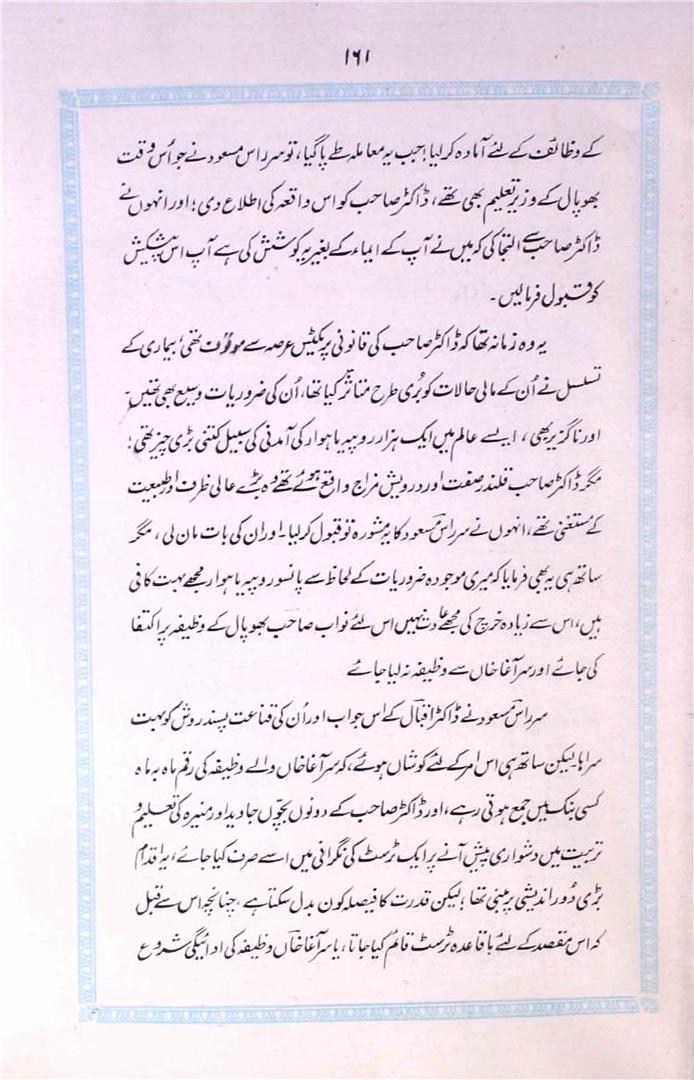 ۱۶۱
کے وظائف کے لئے آمادہ کر لیا! جب یہ معاملہ طے پا گیا، تو سر راس مسعود نے جو اُس وقت
بھوپال کے وزیر تعلیم بھی تھے، ڈاکٹر صاحب کو اس واقعہ کی اطلاع دی؛ اور انہوں نے
ڈاکٹر صاحب سے التجا کی کہ میں نے آپ کے ایماء کے بغیر یہ کوشش کی ہے آپ اس پیشکش
کو قبول فرمالیں۔
یہ وہ زمانہ تھا کہ ڈاکٹر صاحب کی قانونی پریکٹس عرصہ سے موقوف تھی، بیماری کے
تسلسل نے اُن کے مالی حالات کو بُری طرح متاثر کیا تھا، اُن کی ضروریات وسیع بھی تھیں۔
اور ناگزیر بھی، ایسے عالم میں ایک ہزار روپیہ ماہوار کی آمدنی کی سبیل کتنی بڑی چیز تھی؛
مگر ڈاکٹر صاحب قلندر صفت اور درویش مزاج واقع ہوئے تھے وہ بڑے عالی ظرف اور طبیعت
کے مستغنی تھے، انہوں نے سر راس مسعود کا یہ مشورہ تو قبول کر لیا۔ اور ان کی بات مان لی، مگر
ساتھ ہی یہ بھی فرمایا کہ میری موجودہ ضروریات کے لحاظ سے پانسو روپیہ ماہوار مجھے بہت کافی
ہیں، اس سے زیادہ خرچ کی مجھے عادت نہیں اس لئے نواب صاحب بھوپال کے وظیفہ پر اکتفا
کی جائے اور سر آغا خاں سے وظیفہ نہ لیا جائے
سر راس مسعود نے ڈاکٹر اقبال کے اس جواب اور اُن کی قناعت پسند روش کو بہت
سراہا، لیکن ساتھ ہی اس امر کے لئے کوشاں ہوئے، کہ سر آغا خاں والے وظیفہ کی رقم ماہ بہ ماہ
کسی بنک میں جمع ہوتی رہے، اور ڈاکٹر صاحب کے دونوں بچّوں جاوید اور منیرہ کی تعلیم و
تربیت میں دشواری پیش آنے پر ایک ٹرسٹ کی نگرانی میں اسے صرف کیا جائے، یہ اقدام
بڑی دُور اندیشی پر مبنی تھا؛ لیکن قدرت کا فیصلہ کون بدل سکتا ہے، چنانچہ اس سے قبل
کہ اس مقصد کے لئے باقاعدہ ٹرسٹ قائم کیا جاتا، یا سر آغا خاں وظیفہ کی ادائیگی شروع